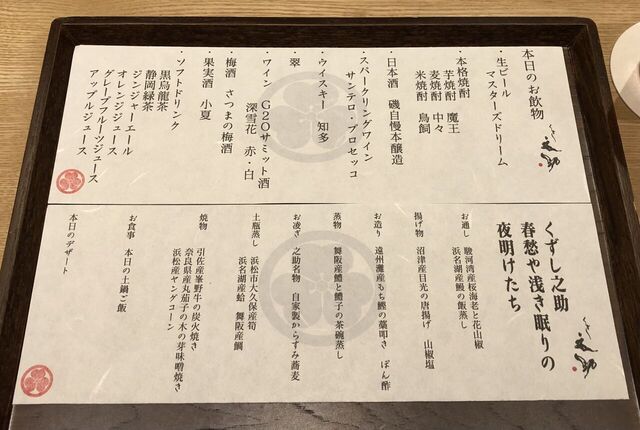 本日のお飲物
・生ビール
マスターズドリーム
・本格焼酎
芋焼酎　魔王
麦焼酎　中々
米焼酎　鳥飼
・日本酒　磯自慢本醸造
・スパークリングワイン
サンテロ・プロセッコ
・ウイスキー　知多
・翠
・ワイン　G20サミット酒
深雪花　赤・白
・梅酒　さつまの梅酒
・果実酒　小夏
・ソフトドリンク
黒烏龍茶
静岡緑茶
ジンジャーエール
オレンジジュース
グレープフルーツジュース
アップルジュース
くずし之助
春愁や浅き眠りの
夜明けたち
お通し　駿河湾産桜海老と花山椒
浜名湖産鰻の飯蒸し
揚げ物　沼津産目光の唐揚げ　山椒塩
お造り　遠州灘産もち鰹の藁叩き　ぽん酢
蒸物　舞阪産鱧と鱧子の茶碗蒸し
お凌ぎ　之助名物　自家製からすみ蕎麦
土瓶蒸し　浜松市大久保産筍
浜名湖産蛤　舞阪産鯛
焼物　引佐産峯野牛の炭火焼き
奈良県産丸茄子の木の芽味噌焼き
浜松産ヤングコーン
お食事　本日の土鍋ご飯
本日のデザート